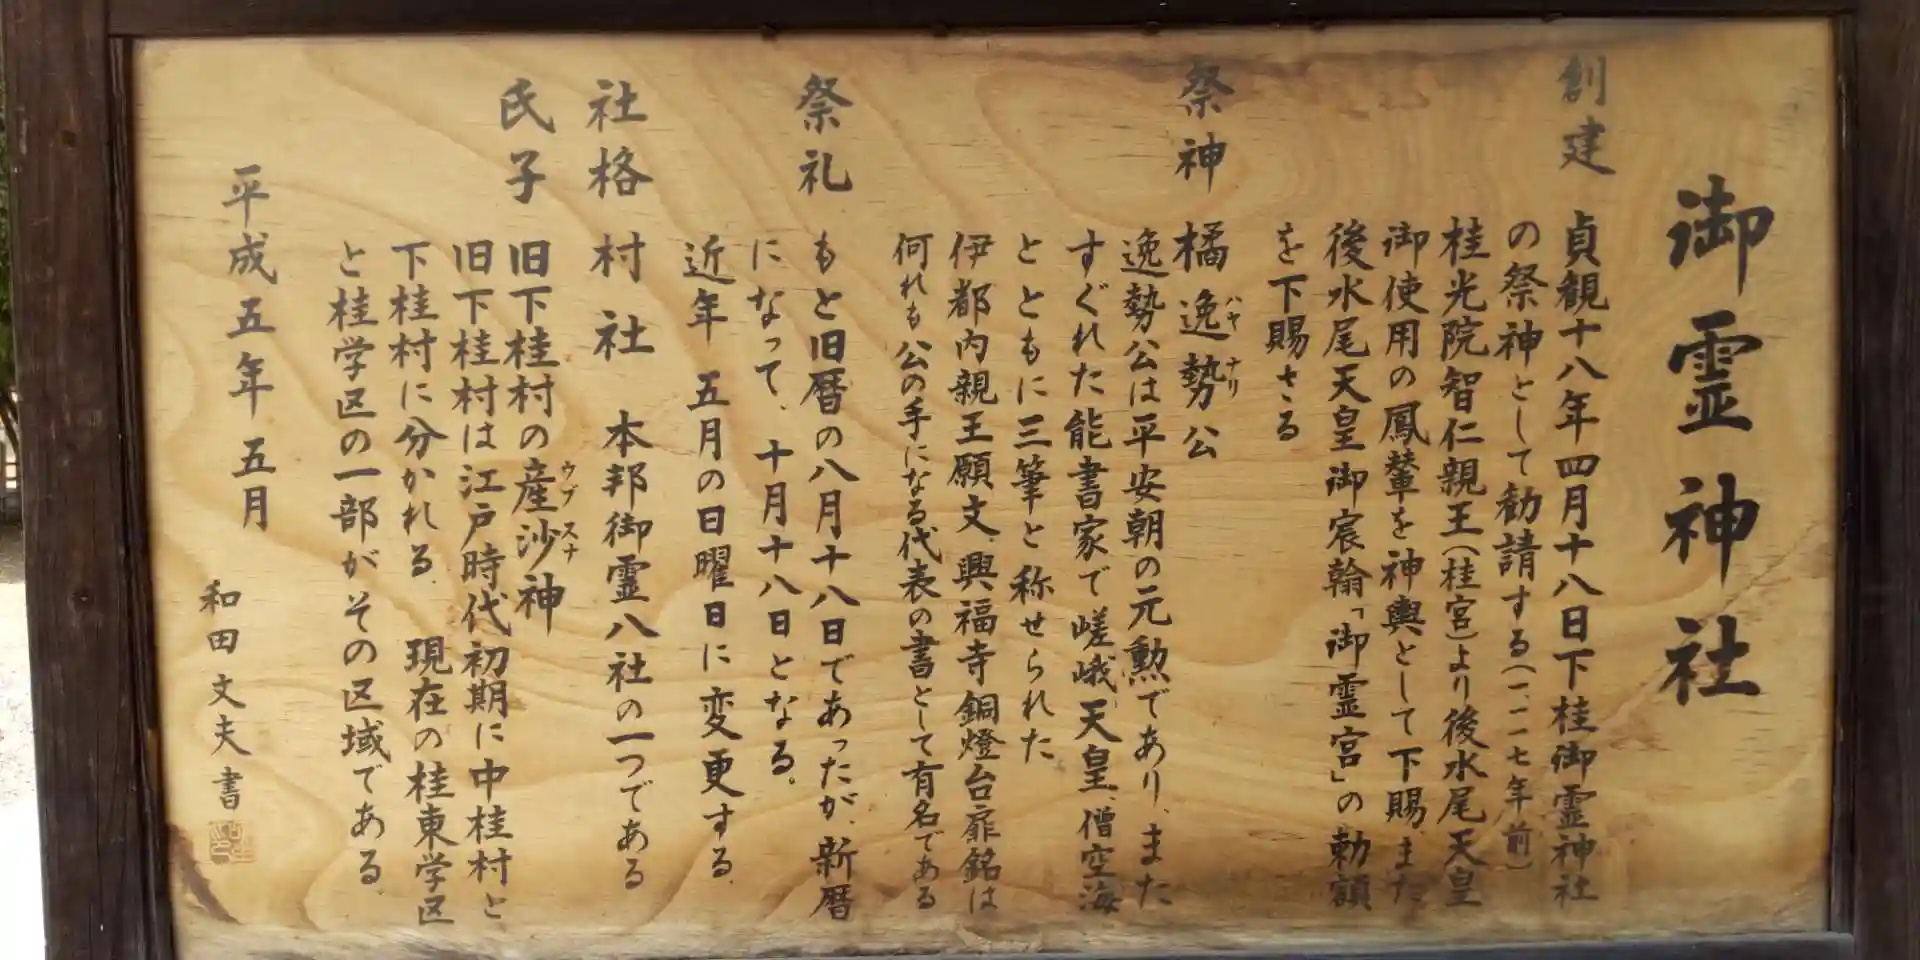 御霊神社
創建 貞観十八年四月十八日下桂御霊神社
の祭神として勧請する(一、一一七年前)
桂光院智仁親王(桂宮)より後水尾天皇
御使用の鳳輦を神輿として下賜、また
後水尾天皇御宸翰「御霊宮」の勅額
を下賜さる
祭神 橘逸勢公 ハヤナリ
逸勢公は平安朝の元勲であり、また
すぐれた能書家で嵯峨天皇、僧空海
とともに三筆と称せられた
伊都内親王願文、興福寺銅燈台扉銘は
何れも公の手になる代表の書として有名である
祭礼 もと旧暦の八月十八日であったが、新暦
になって、十月十八日となる。
近年 五月の日曜日に変更する。
社格 村社 本邦御霊八社の一つである
氏子 旧下桂村の産沙神 ウブスナ
旧下桂村は江戸時代初期に中桂村と
下桂村に分かれる。 現在の桂東学区
と桂学区の一部がその区域である。
平成五年五月
和田文夫書